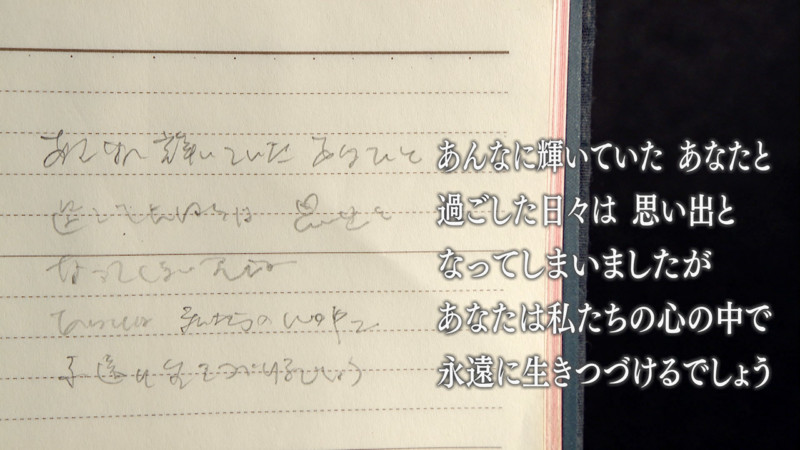 あんなに輝いていた あなたと
過ごした日々は 思い出と
なってしまいましたが
あなたは私たちの心の中で
永遠に生きつづけるでしょう
あんなに輝いていた あなたと
過ごした日々は 思い出と
なってしまいましたが
あなたは私たちの心の中で
永遠に生きつづけるでしょう